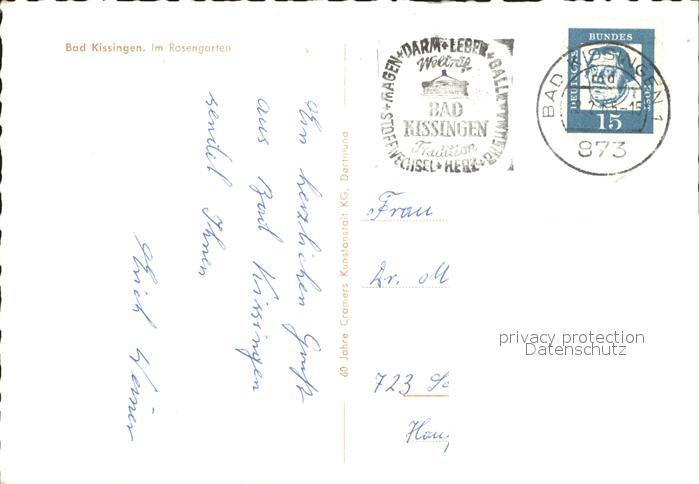 Bad Kissingen. Im Rosengarten
MAGEN DARM LEBER GALLE RHEUMA HERZ STOFFWECHSEL
Weltruf
BAD
KISSINGEN
Tradition
DEUTSCHE BUNDESPOST
15
BAD KISSINGEN 1
873
Ein herzlichen Gruß
aus Bad Kissingen
sendet Ihnen
60 Jahre Cramers Kunstanstalt KG, Dortmund
Frau
Dr. M
723 Sc
Hau
privacy protection
Datenschutz